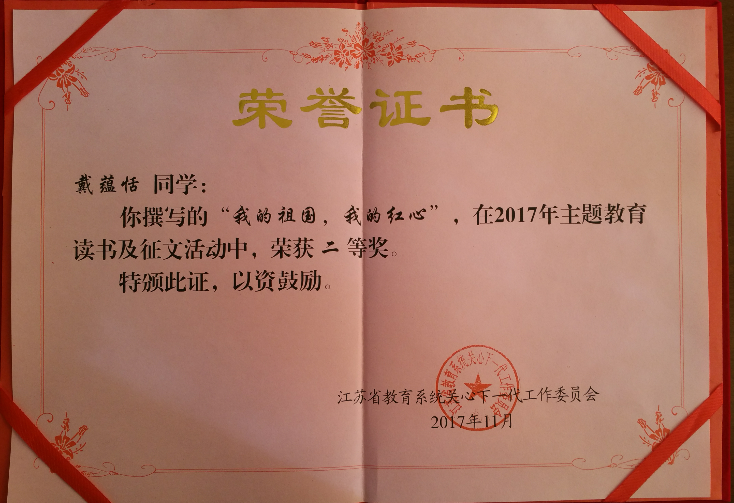 荣誉证书
戴蕴恬 同学：
你撰写的“我的祖国，我的红心”，在2017年主题教育
读书及征文活动中，荣获 二 等奖。
特颁此证，以资鼓励。
江苏省教育系统关心下一代工作委员会
2017年11月